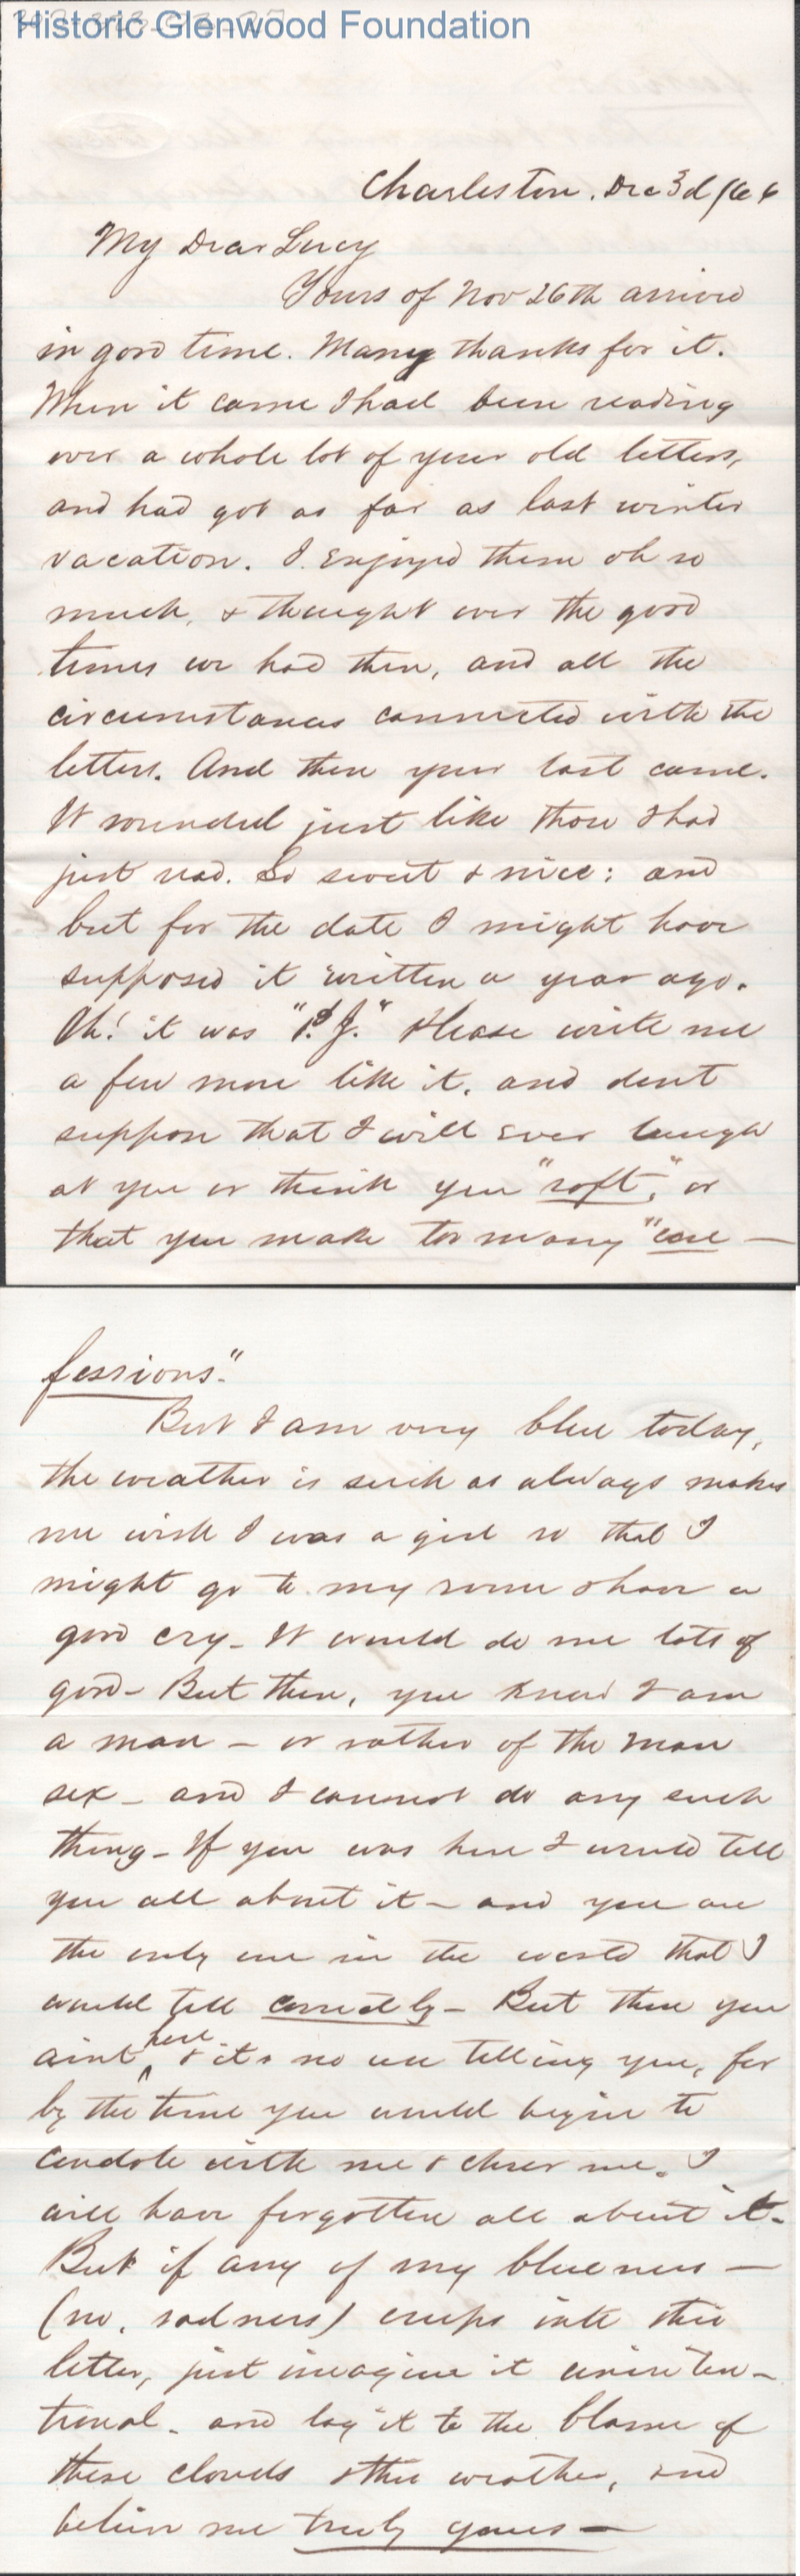 Historic Glenwood Foundation
Charleston. Dec 3d /66
My Dear Lucy
Yours of Nov 26th arrived
in good time. Many thanks for it.
When it came I had been reading
over a whole lot of your old letters,
and had got as far as last winter
vacation. I enjoyed them oh so
much, & thought over the good
times we had then, and all the
circumstances connected with the
letters. And then your last came.
It sounded just like those I had
just read. So sweet & nice: and
but for the date I might have
supposed it written a year ago.
Oh! it was "P.J." Please write me
a few more like it. and dont
suppose that I will ever laugh
at you or think you "soft", or
that you make too many "con –
fessions".
But I am very blue today,
the weather is such as always makes
me wish I was a girl so that I
might go to my room & have a
good cry – It would do me lots of
good – But then, you know I am
a man – or rather of the man
sex – and I cannot do any such
thing – If you was here I would tell
you all about it – and you are
the only one in the world that I
would tell candidly – But then you
aint here & its no use telling you, for
by the time you would begin to
condole with me & cheer me. I
will have forgotten all about it.
But if any of my blueness –
(no, sadness) creeps into this
letter, just imagine it uninten –
tional. and lay it to the blame of
these clouds & this weather, and
believe me truly yours –